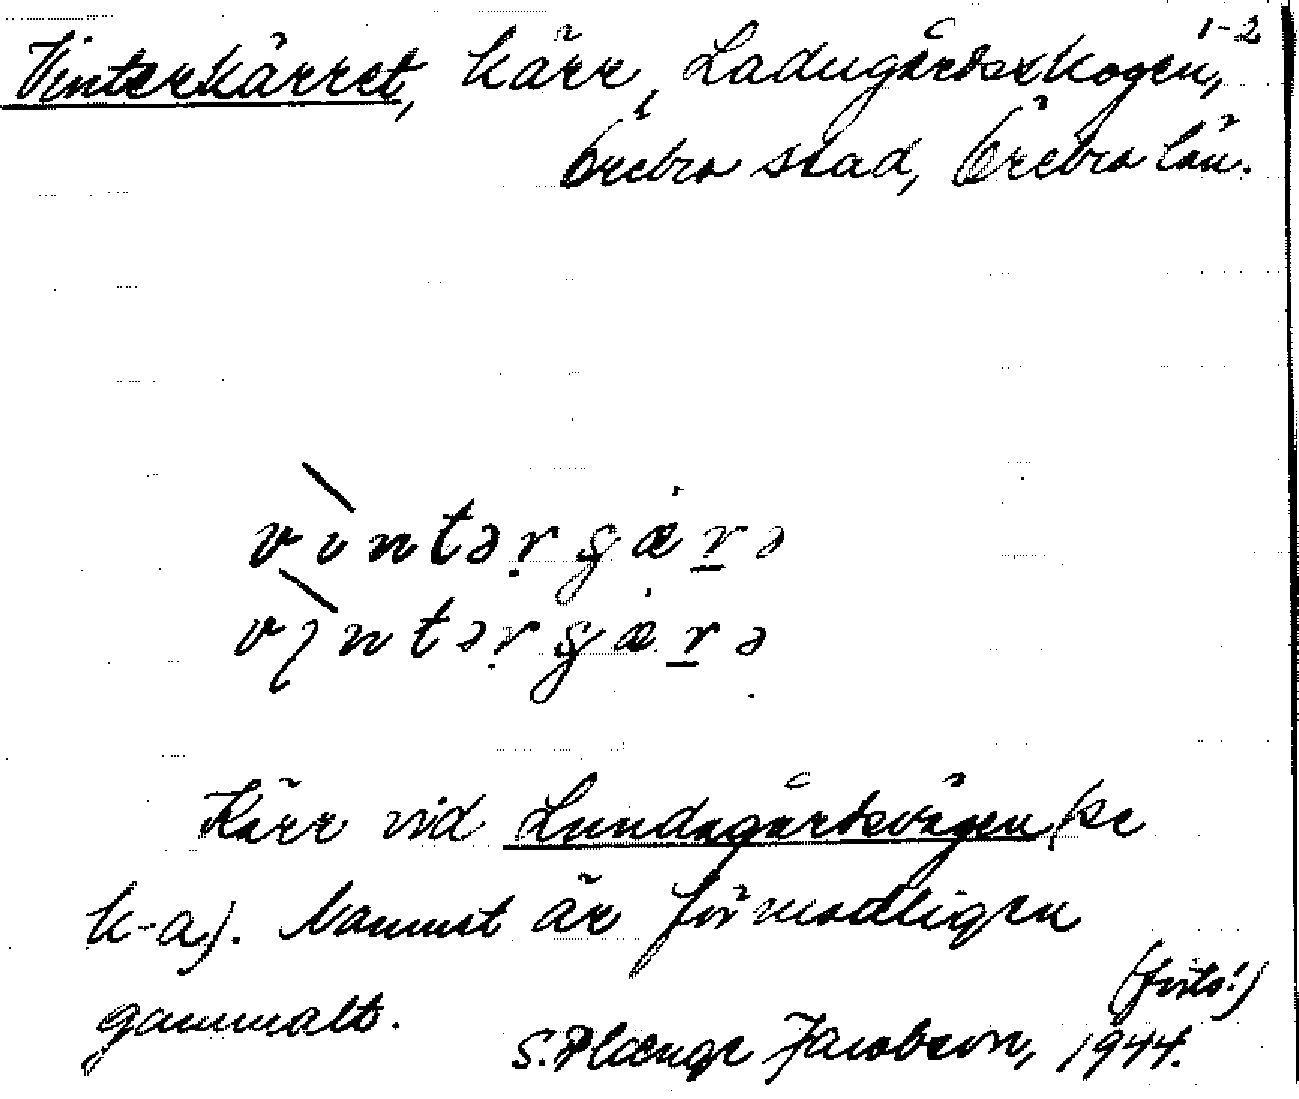 1-2
Vinterkärret, kärr, Ladugårdsskogen,
Örebro stad, Örebro län.
vìntərgä̀rə
vìntərgä̀rə
Kärr vid Lundagårdsvägen (se
k-a). Namnet är förmodligen
gammalt.
(forts!)
S. Plænge Jacobson, 1944.